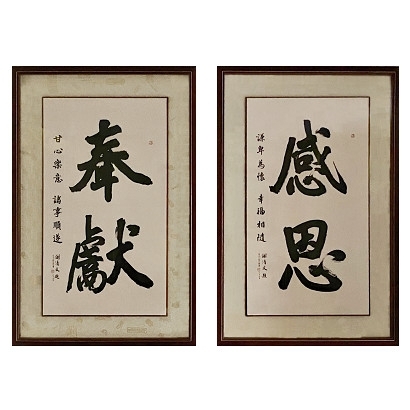 感恩
謙卑為懷 幸福相隨
奉獻
甘心樂意 諸事順遂